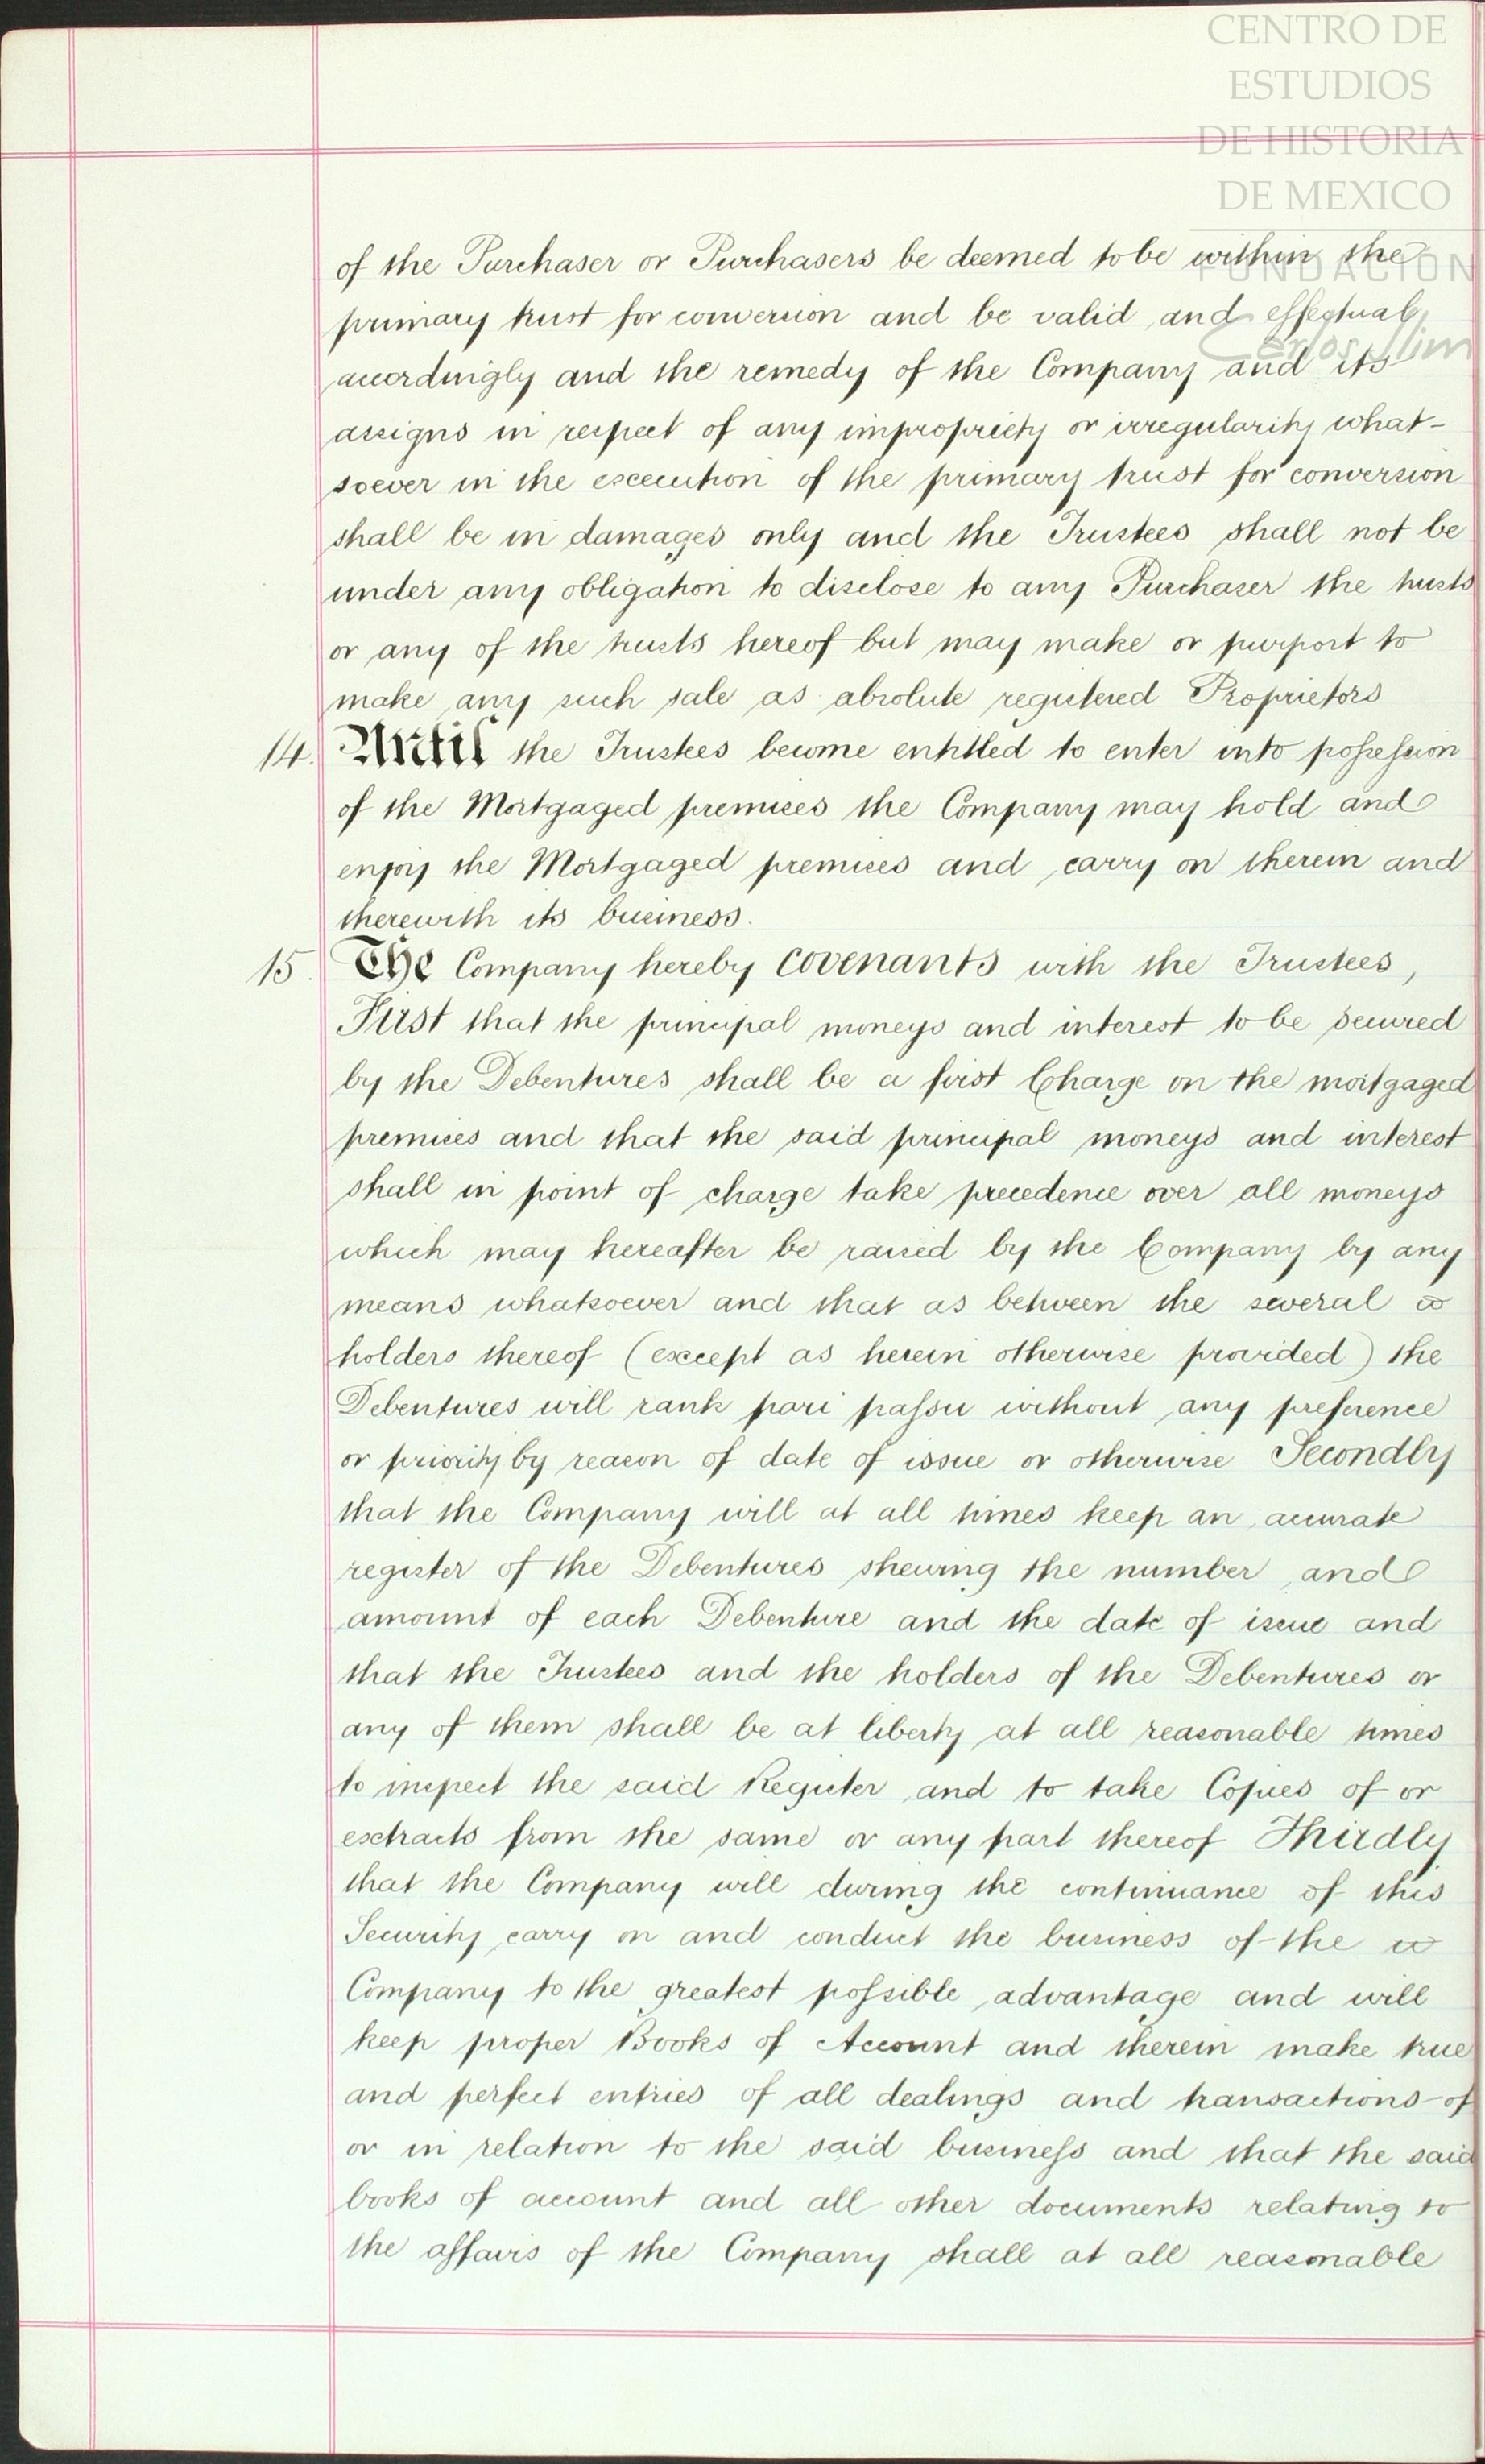 CENTRO DE
ESTUDIOS
DE HISTORIA
DE MEXICO
FUNDACION
Carlos Slim
of the Purchaser or Purchasers be deemed to be within the
primary trust for conversion and be valid and effectual
accordingly and the remedy of the Company and its
assigns in respect of any impropriety or irregularity what-
soever in the execution of the primary trust for conversion
shall be in damages only and the Trustees shall not be
under any obligation to disclose to any Purchaser the trusts
or any of the trusts hereof but may make or purport to
make any such sale as absolute registered Proprietors
14. Until the Trustees become entitled to enter into possession
of the Mortgaged premises the Company may hold and
enjoy the Mortgaged premises and carry on therein and
therewith its business.
15. The Company hereby covenants with the Trustees,
First that the principal moneys and interest to be secured
by the Debentures shall be a first Charge on the mortgaged
premises and that the said principal moneys and interest
shall in point of charge take precedence over all moneys
which may hereafter be raised by the Company by any
means whatsoever and that as between the several
holders thereof (except as herein otherwise provided) the
Debentures will rank pari passu without any preference
or priority by reason of date of issue or otherwise Secondly
that the Company will at all times keep an accurate
register of the Debentures shewing the number and
amount of each Debenture and the date of issue and
that the Trustees and the holders of the Debentures or
any of them shall be at liberty at all reasonable times
to inspect the said Register and to take Copies of or
extracts from the same or any part thereof Thirdly
that the Company will during the continuance of this
Security carry on and conduct the business of the
Company to the greatest possible advantage and will
keep proper Books of Account and therein make true
and perfect entries of all dealings and transactions of
or in relation to the said business and that the said
books of account and all other documents relating to
the affairs of the Company shall at all reasonable